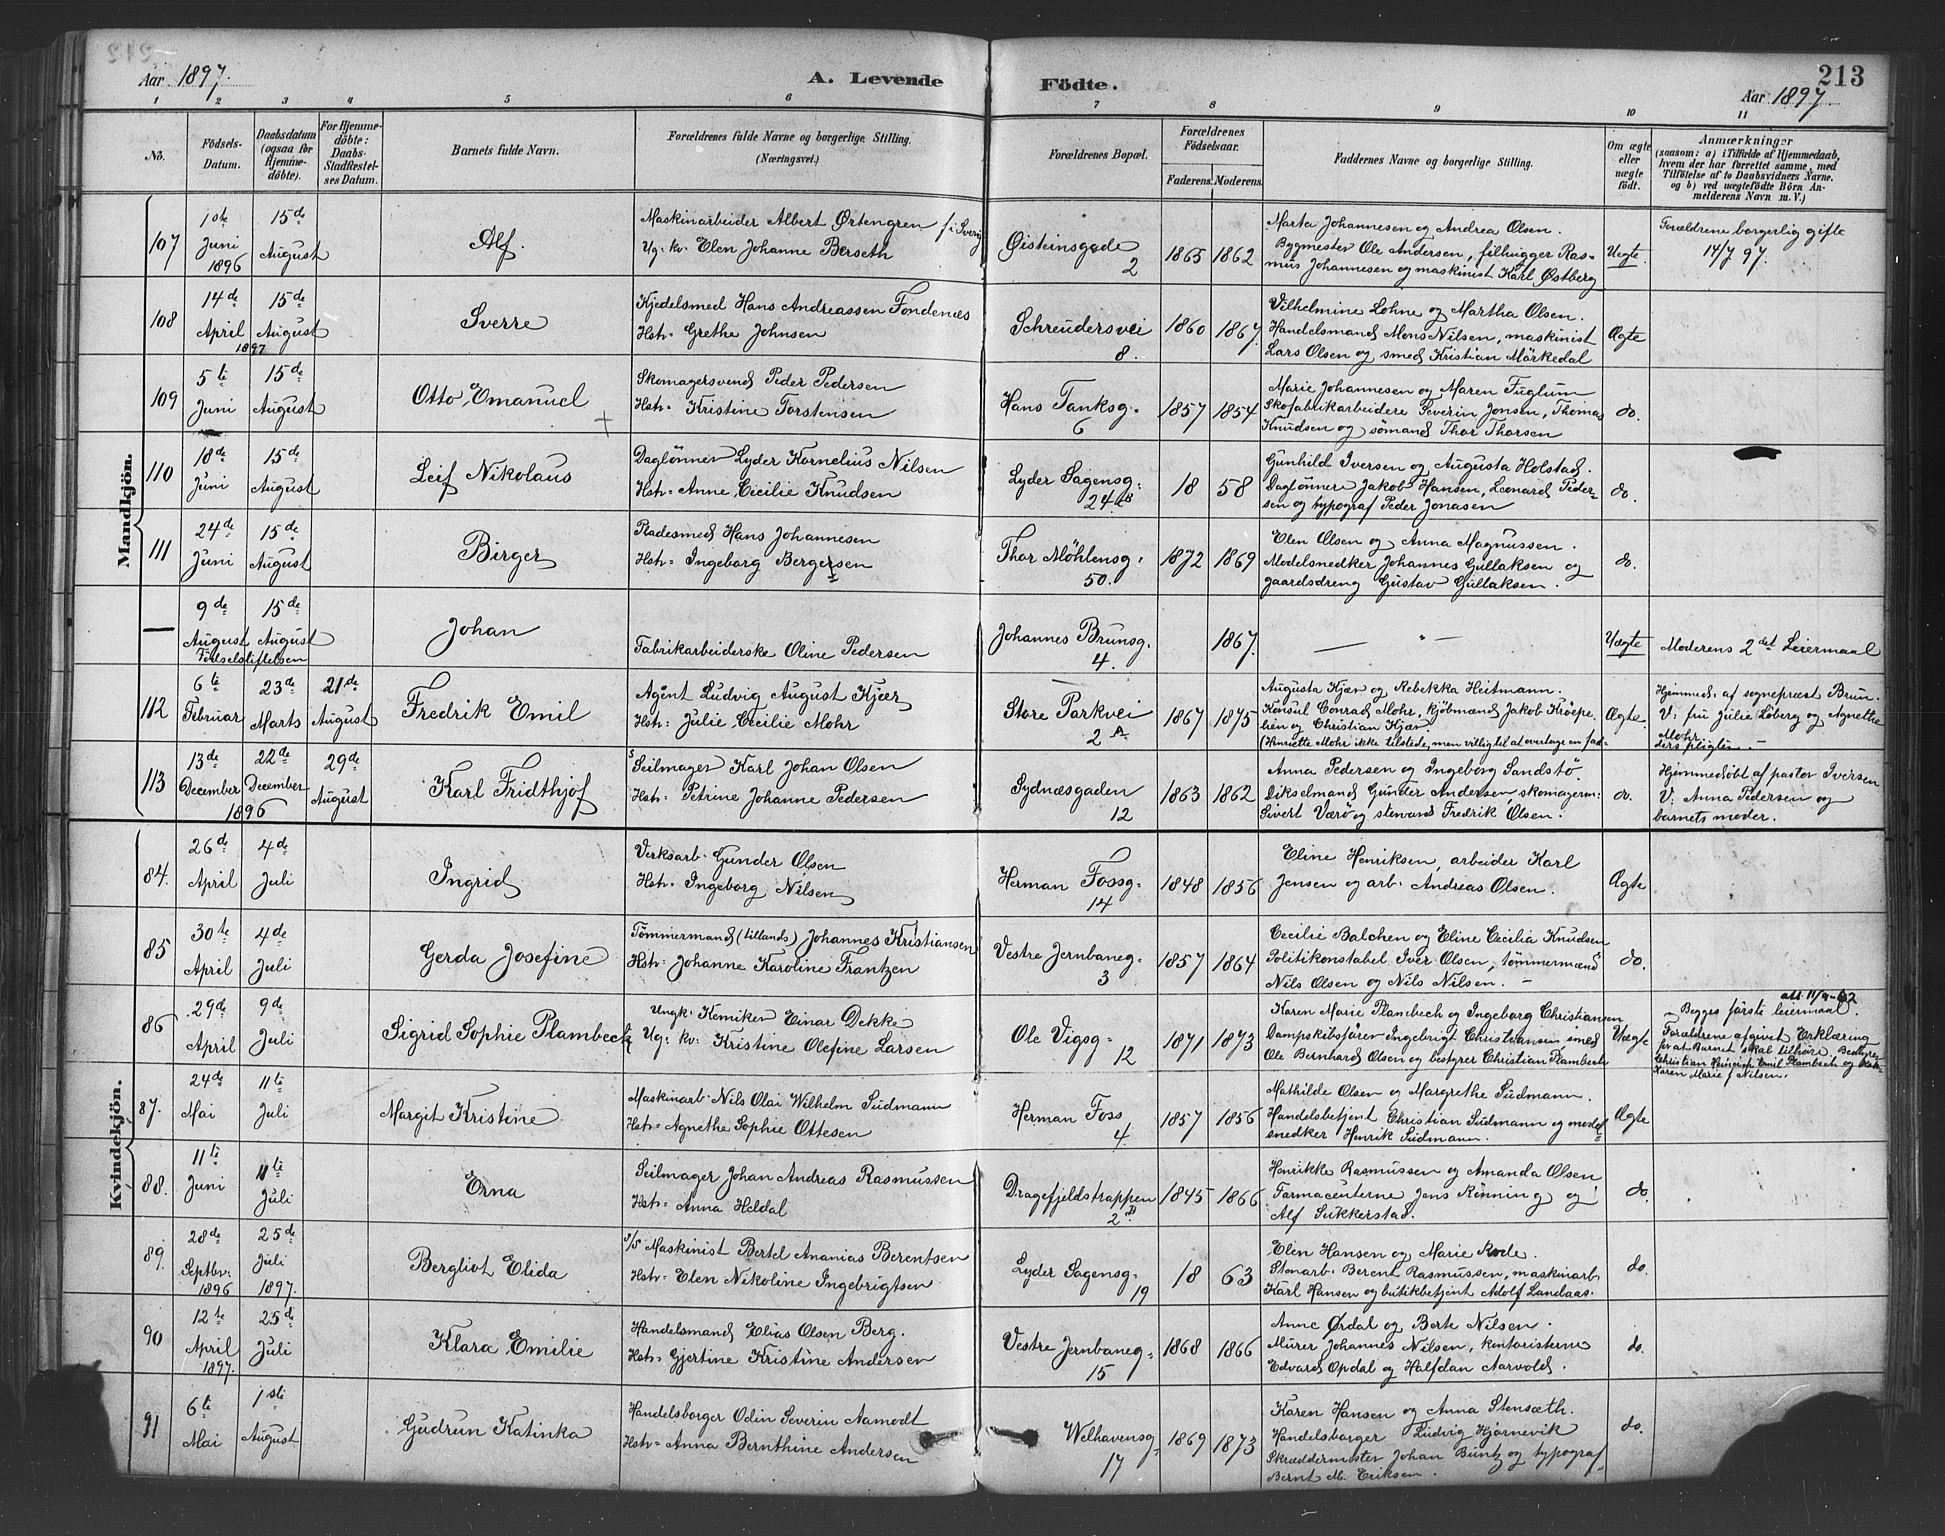 213
Aar 1897.
A. Levende
Födte.
Aar 1897.
1 2 3 4 5 6 7 8 9 10 11
No.
Födsels-
Datum.
Daabsdatum
(ogsaa for
Hjemme-
döbte).
For Hjemme-
döbte:
Daabs-
Stadfæstel-
ses Datum.
Barnets fulde Navn.
Forældrenes fulde Navne og borgerlige Stilling.
(Næringsvei.)
Forældrenes Bopæl.
Forældrenes
Födselsaar.
Faderens. Moderens.
Faddernes Navne og borgerlige Stilling.
Om ægte
eller
uægte
födt.
Anmærkninger
(saasom: a) i Tilfælde af Hjemmedaab,
hvem der har forrettet samme, med
Tilföielse af to Daabsvidners Navne.
og b) ved uægtefödte Börn An-
melderens Navn m. V.)
Mandkjön.
107
1ste Juni 1896
15de August
Alf.
Maskinarbeider Albert Örtengren f i Sverig
Ug. kv. Elen Johanne Berseth
Öisteinsgade
2
1865 1862
Marta Johannesen og Andrea Olsen.
Bygmester Ole Andersen, filhugger Ras-
mus Johannesen og maskinist Karl Østberg
Uegte.
Forældrene borgerlig gifte
14/7 97.
108
14de April 1897
15de August
Sverre
Kjedelsmed Hans Andreassen Fondenæs
Hstr Grethe Johnsen
Schreudersvei
8.
1860 1867.
Vilhelmine Lohne og Martha Olsen.
Handelsmand Mons Nilsen, maskinist
Lars Olsen og smed Kristian Mörkedal
Ægte
109
5te Juni
15de August
Otto Emanuel
Skomagersvend Peder Pedersen
Hstr Kristine Torstensen
Hans Tanksg.
6
1857 1854
Marie Johannesen og Maren Fuglum
Skofabrikarbeidere Severin Jensen, Thomas
Knudsen og sömand Thor Thorsen
do.
110
18de Juni
15de August
Leif Nikolaus
Daglönner Lyder Kornelius Nilsen
Hstr Anne Cecilie Knudsen
Lyder Sagensg.
24 b
18 58
Gunhild Iversen og Augusta Holstad.
Daglönnere Jakob Hansen, Leonard Peder-
sen og typograf Peder Jonasen
do.
111
24de Juni
15de August
Birger
Pladesmed Hans Johannesen
Hstr Ingeborg Bergersen
Thor Möhlensg.
50.
1872 1869
Elen Olsen og Anna Magnussen.
Modelsnedker Johannes Gullaksen og
gaardsdreng Gustav Gullaksen.
do.
—
9de August
15de August
Födselsstiftelsen
Johan
Fabrikarbeiderske Oline Pedersen
Johannes Brunsg.
4.
1867.
— " —
Uægte
Moderens 2det Leiermaal
112
6te Februar
23de Marts
21de August
Fredrik Emil
Agent Ludvig August Kjær
Hstr Julie Cecilie Mohr
Store Parkvei
2 A
1867 1875
Augusta Kjær og Rebekka Heitmann.
Konsul Conrad Mohr, kjöbmænd Jakob Kröepe-
lien og Christian Kjær.
(Henriette Mohr ikke tilstede, men villig til at overtage en fad-
derspligter. —
Ægte.
Hjemmed. af sogneprest Brun.
V: fru Julie Löberg og Agnethe
Mohr
113
13de December 1896
22de December
29de August
Karl Fridthjof
Seilmager Karl Johan Olsen
Hstr Petrine Johanne Pedersen
Sydnæsgaden
12
1863 1862
Anna Pedersen og Ingeborg Sandstö.
Dikselmand Gunder Andersen, skomagerm.
Sivert Værö og steward Fredrik Olsen.
do.
Hjemmedöbt af pastor Iversen
V: Anna Pedersen og
barnets moder.
Kvindekjön.
84.
26de April
4de Juli
Ingrid
Verksarb. Gunder Olsen
Hstr Ingeborg Nilsen
Herman Fossg.
14
1848 1856
Eline Henriksen, arbeider Karl
Jensen og arb. Andreas Olsen.
Ægte
85
30te April
4de Juli
Gerda Josefine
Tömmermand (tillands) Johannes Kristiansen
Hstr Johanne Karoline Frantzen
Vestre Jernbaneg.
3
1857 1864
Cecilie Balchen og Eline Cecilia Knudsen
Politikonstabel Iver Olsen, tömmermænd
Nils Olsen og Nils Nilsen. —
do.
86
29de April
9de Juli
Sigrid Sophie Plambeck
Ungk. Kemiker Einar Dekke
Ug. kv. Kristine Olefine Larsen
Ole Vigsg.
12
1871 1873
Karen Marie Plambech og Ingeborg Christiansen
Dampskibsförer Ingebrigt Christiansen, smed
Ole Bernhard Olsen og bestyrer Christian Plambech
Uægte
Begges förste leiermaal.
Forældrene afgivet Erklæring
for at Barnet skal tilhöre Bestyrer
Christian Heinrich Emil Plambech og
Karen Marie f Nilsen.
87.
24de Mai
11te Juli
Margit Kristine
Maskinarb. Nils Olai Wilhelm Südmann
Hstr Agnethe Sophie Ottesen
Herman Foss
4
1857 1856
Mathilde Olsen og Margrethe Südmann.
Handelsbetjent Christian Südmann og model-
snedker Henrik Südmann.
Ægte
88.
11te Juni
11te Juli
Erna
Seilmager Johan Andreas Rasmussen
Hstr Anna Heldal
Dragefjeldstrappen
2 D
1845 1866
Henrikke Rasmussen og Amanda Olsen
Farmaceuterne Jens Rönning og
Alf Sukkerstad.
do.
89.
28de Septbr. 1896
25de Juli 1897.
Bergliot Elida
Maskinist Bertel Ananias Berentsen
Hstr Elen Nikoline Ingebrigtsen
Lyder Sagensg.
19
18 63
Elen Hansen og Marie Rode.
Stenarb. Berent Rasmussen, maskinarb.
Karl Hansen og butikbetjent Adolf Landaas.
do.
90
12te April 1897.
25de Juli
Klara Emilie
Handelsmand Elias Olsen Berg.
Hstr Gjertine Kristine Andersen
Vestre Jernbaneg.
15
1868 1866
Anne Ørdal og Berte Nilsen.
Murer Johannes Nilsen, kontoristerne
Edvard Opdal og Halfdan Aarvold.
do.
91
6te Mai
1ste August
Gudrun Katinka
Handelsborger Odin Severin Aamodt
Hstr Anna Bernthine Andersen
Welhavensg.
17
1869 1873
Karen Hansen og Anna Stensæth.
Handelsborger Ludvig Hjörnevik
Skræddermester Johan Buntz og typograf
Bernt M. Eriksen.
do.